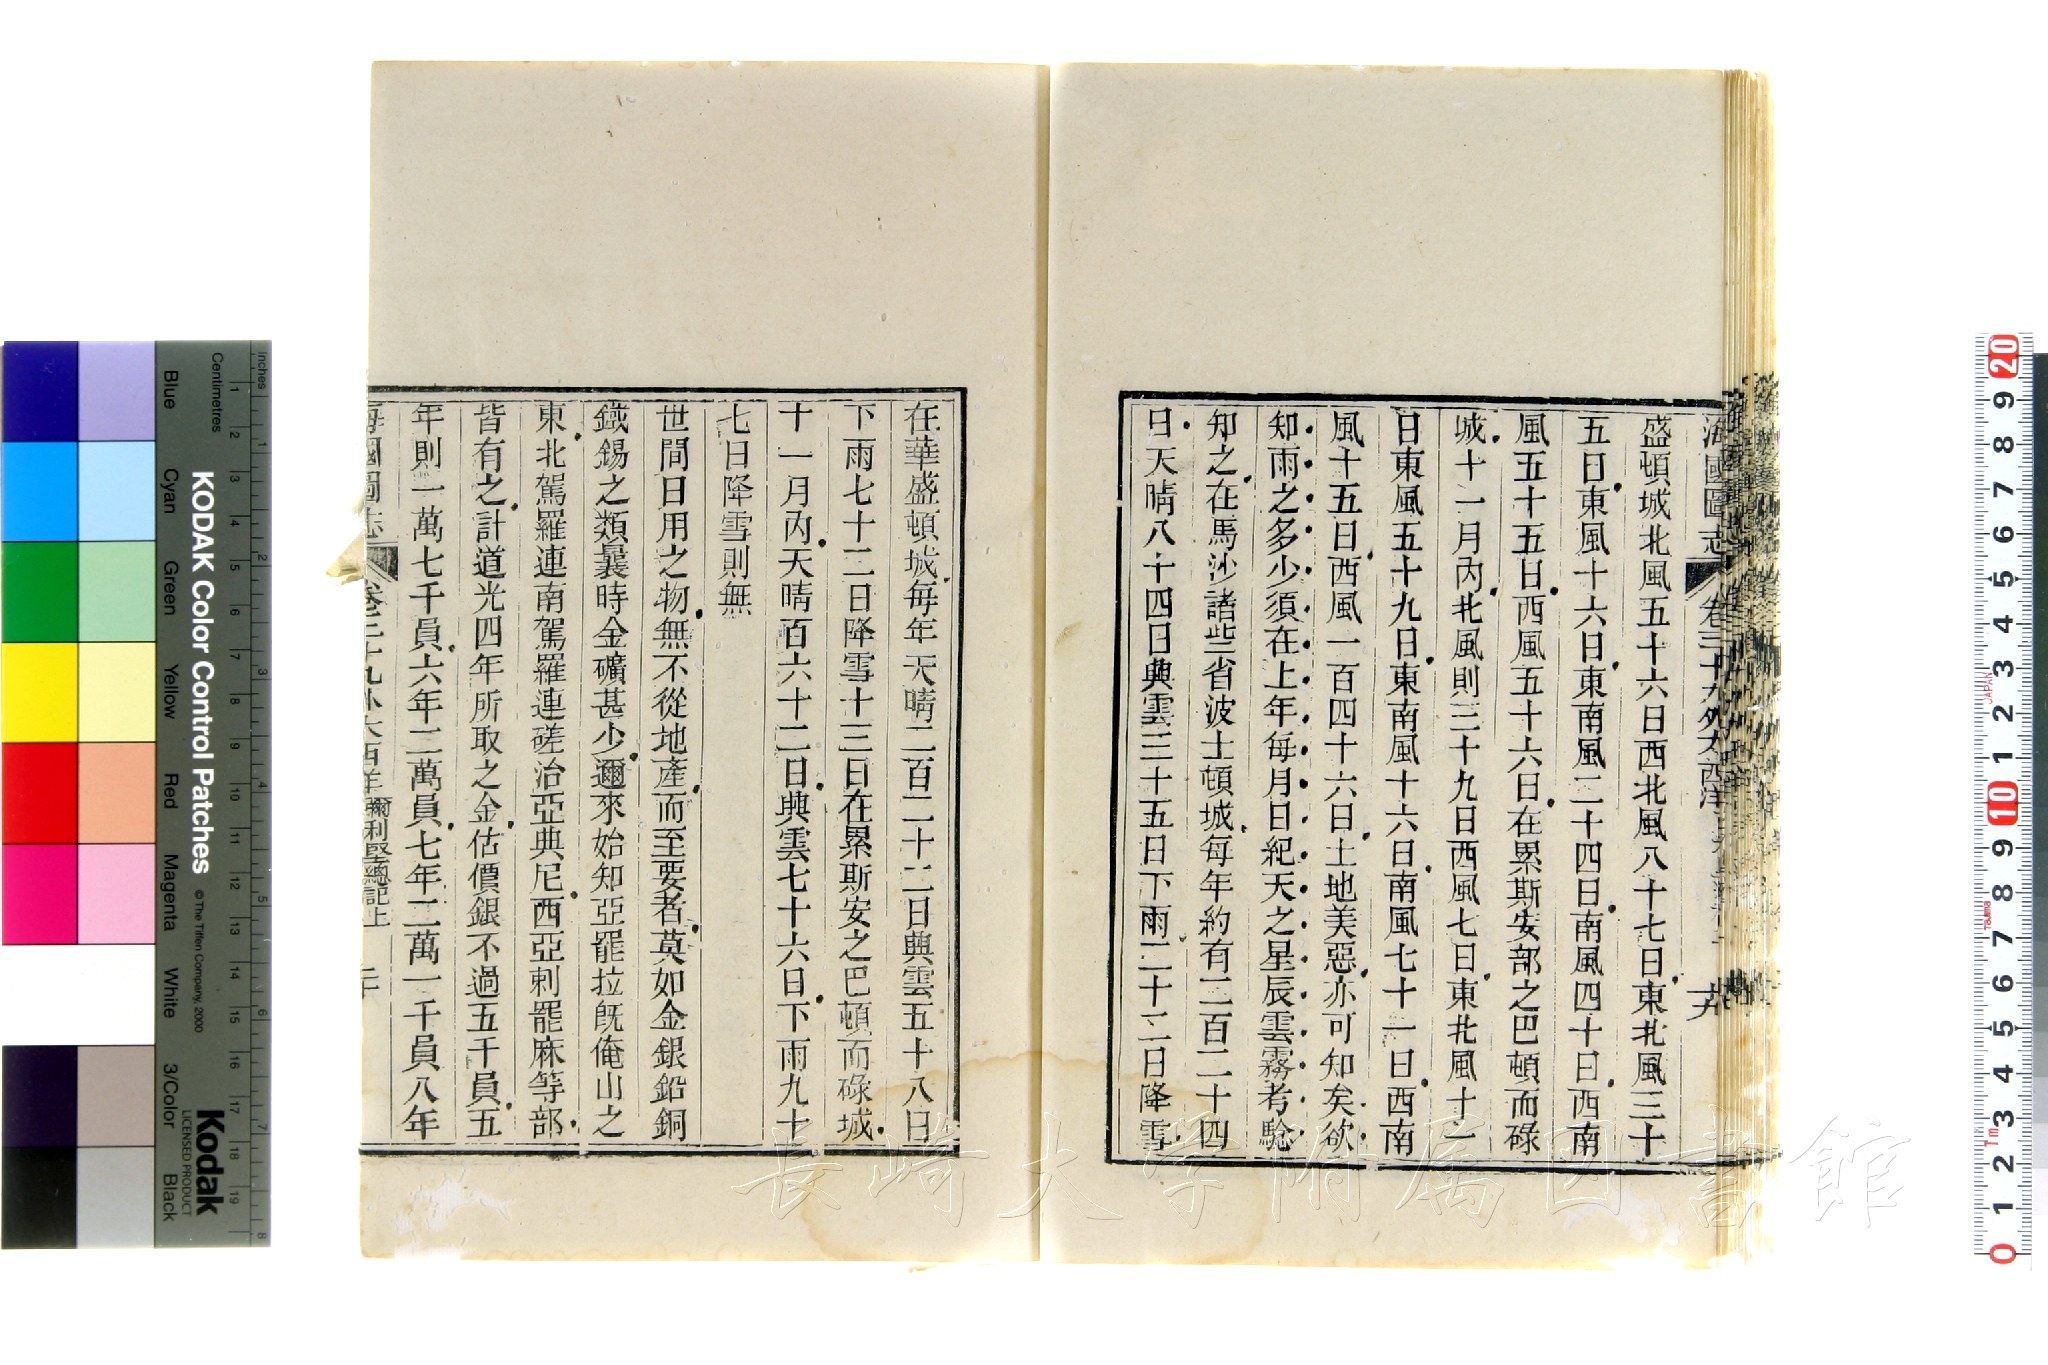 海國圖志 卷三十九外大西洋 十九
盛頓城北風五十六日西北風八十七日東北風三十
五日東風十六日東南風二十四日南風四十日西南
風五十五日西風五十六日在累斯安部之巴頓而碌
城十一月內北風則三十九日西風七日東北風十一
日東風五十九日東南風十六日南風七十一日西南
風十五日西風一百四十六日土地美惡亦可知矣欲
知雨之多少須在上年每月日紀天之星辰雲霧考騐
知之在馬沙諸些省波士頓城每年約有二百二十四
日天晴八十四日典雲三十五日下雨二十二日降雪
在華盛頓城每年天晴二百二十二日典雲五十八日
下雨七十二日降雪十三日在累斯安之巴頓而碌城
十一月內天晴百六十二日典雲七十六日下雨九十
七日降雪則無
世間日用之物無不從地產而至要者莫如金銀鉛銅
鐵錫之類曩時金礦甚少邇來始知亞罷拉旣俺山之
東北駕羅連南駕羅連磋治亞典尼西亞剌罷麻等部
皆有之計道光四年所取之金估價銀不過五千員五
年則一萬七千員六年二萬員七年二萬一千員八年
海國圖志 卷三十九外大西洋 彌利堅總記上 二十
KODAK Color Control Patches
© The Tiffen Company, 2000
Kodak
LICENSED PRODUCT
Centimetres
Inches
Blue
Cyan
Green
Yellow
Red
Magenta
White
3/Color
Black
1 2 3 4 5 6 7 8 9 10 11 12 13 14 15 16 17 18 19
1 2 3 4 5 6 7 8
20 9 8 7 6 5 4 3 2 1 10 9 8 7 6 5 4 3 2 1 0
JAPAN
長崎大学附属図書館